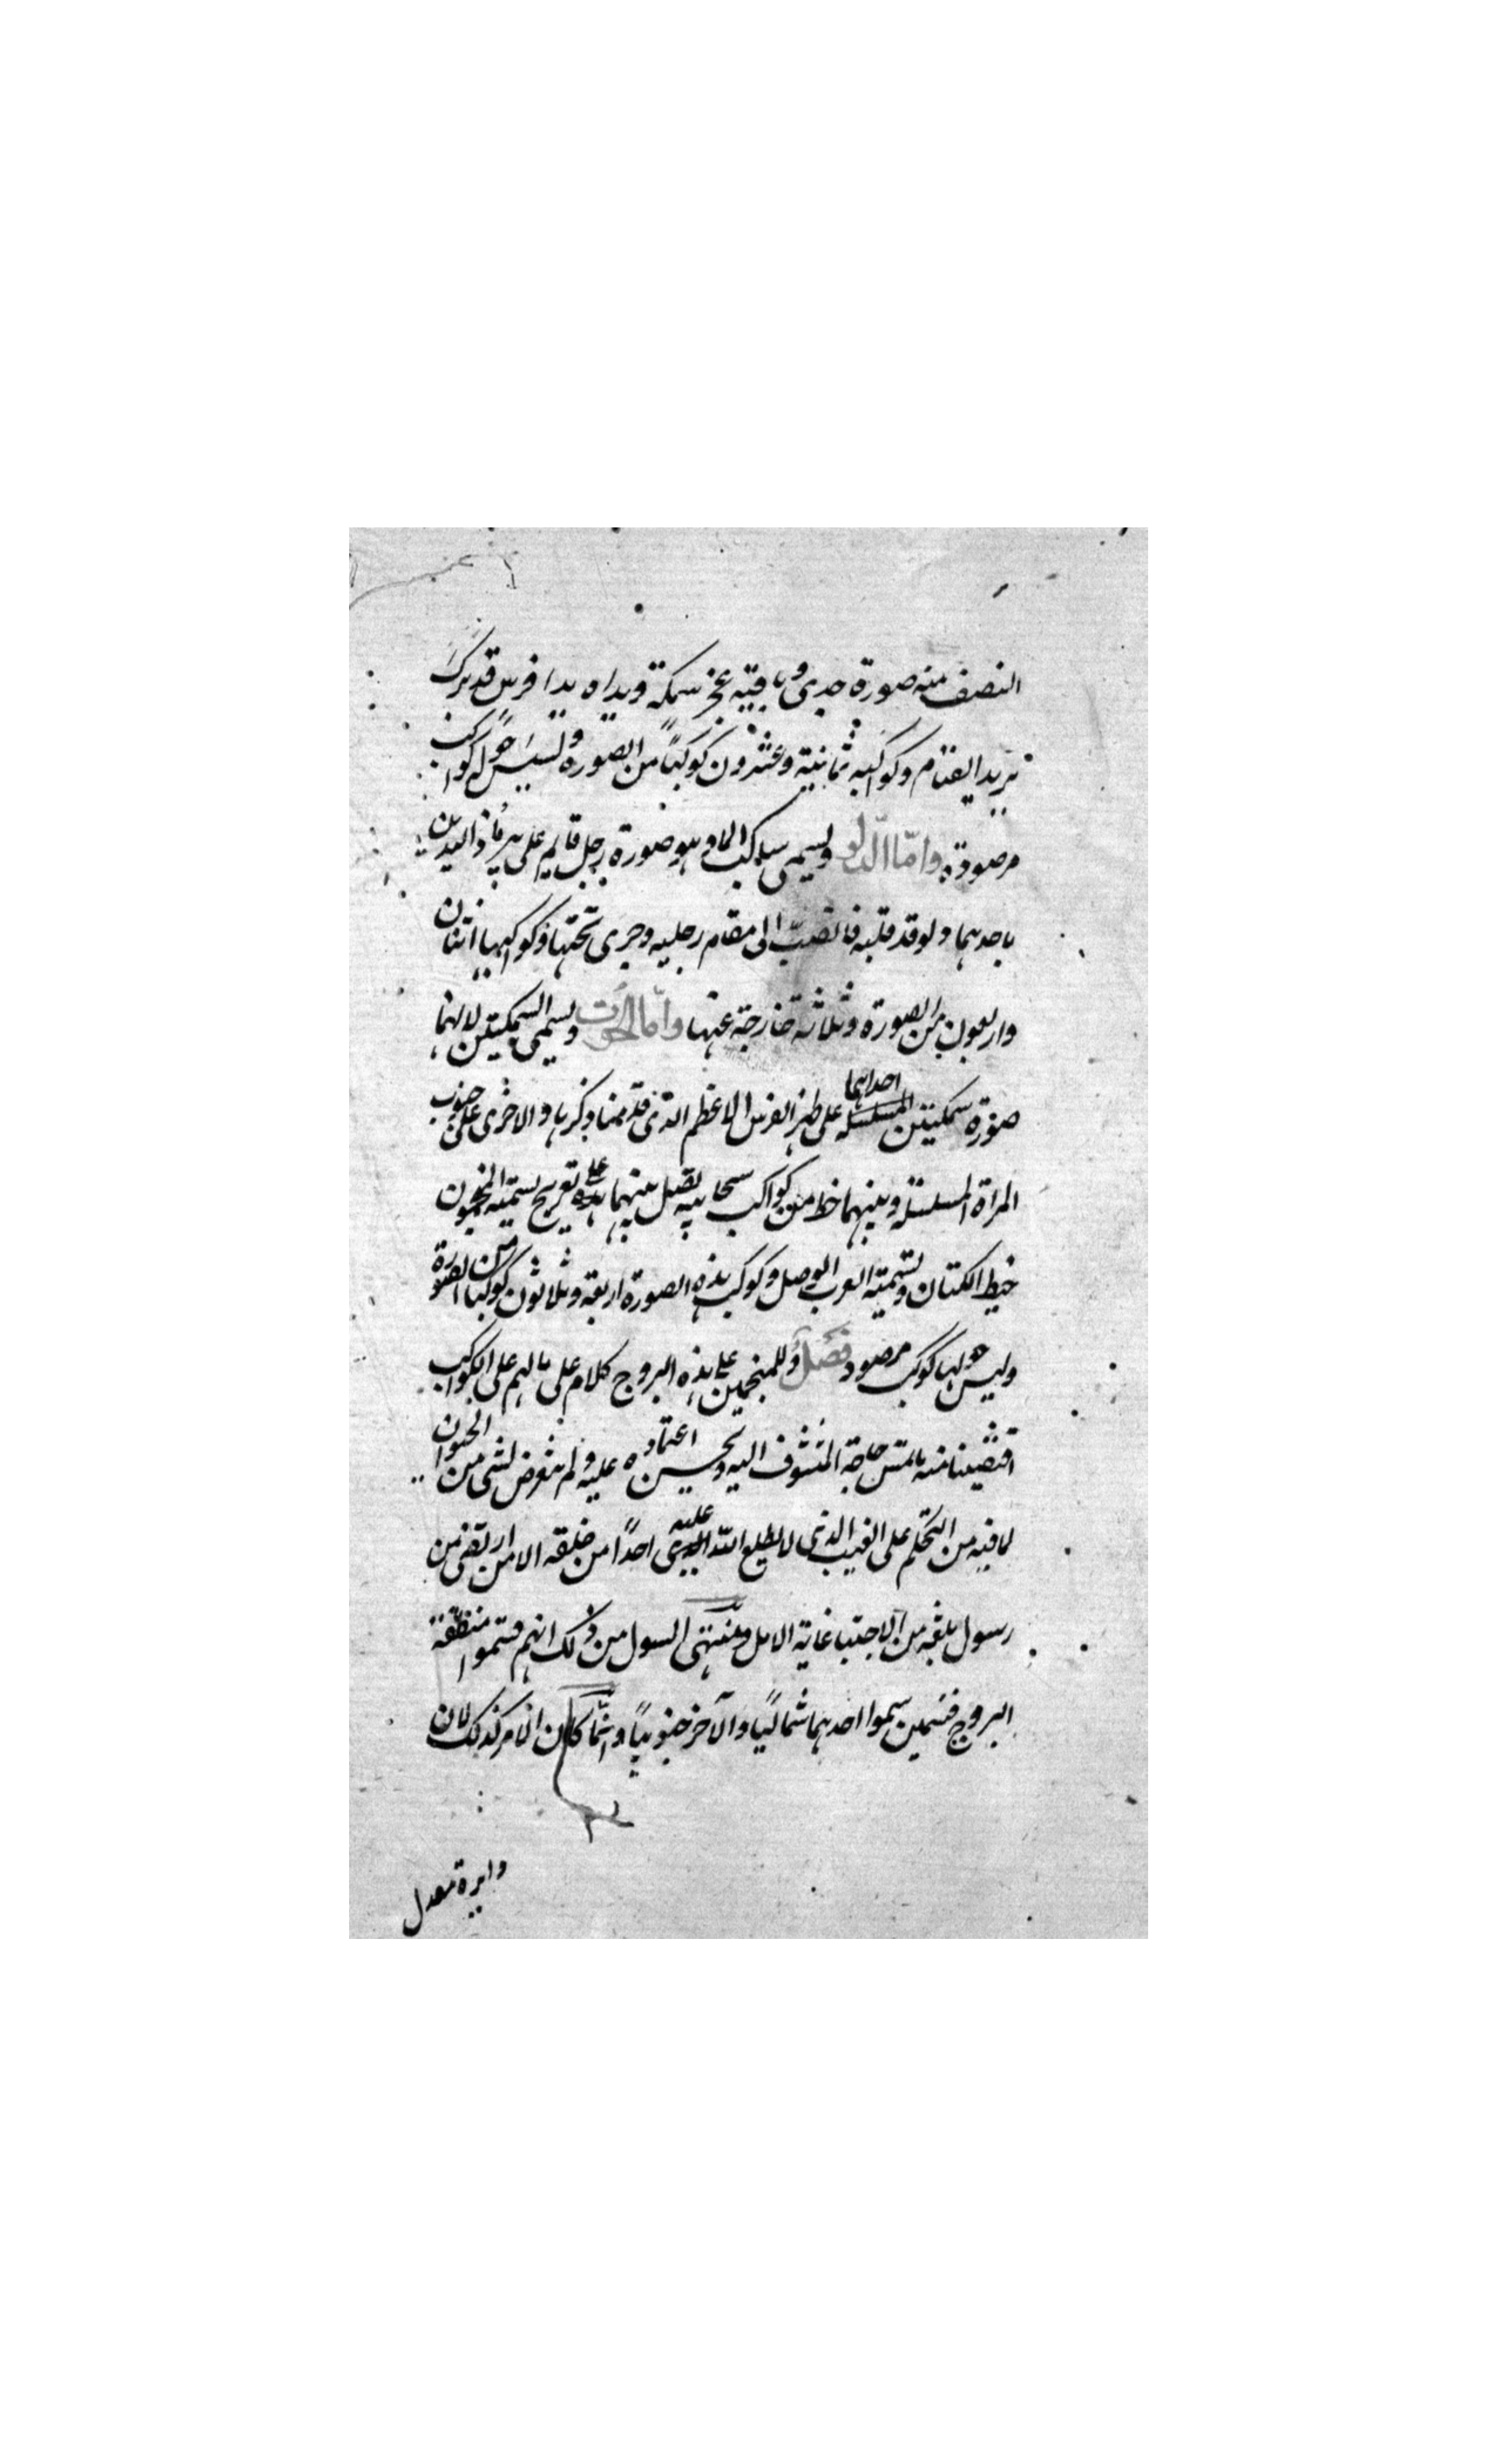 النصف منه صورة جدى وباقيه عجز سمكة ويداه يدا فرس قد برك
يريد القيام وكواكبه ثمانية وعشرون كوكبًا من الصورة وليس حوله كواكب
مرصودة واما الدلو ويسمى ساكب الماء وهو صورة رجل قايم على يديه ماد اليدين
باحدهما دلو قد قلبه فانصب الى مقام رجليه وجرى تحتها وكواكبها اثنان
واربعون من الصورة وثلاثة خارجة عنها واما الحوت ويسمى السمكتين لانهما
صورة سمكتين احداهما على ظهر الفرس الاعظم الذى قدمنا ذكرها والاخرى على جنوب
المراة المسلسلة وبينهما خط من كواكب سحابية يصل بينهما على تعريج يسميه المنجمون
خيط الكتان وتسميه العرب الوصل وكوكب هذه الصورة اربعة وثلاثون كوكبا من الصورة
وليس حولها كوكب مرصود فصل وللمنجمين على هذه البروج كلام على مالهم على الكواكب
اقتضينا منه ما تمس حاجة المتشوف اليه ويحسن اعتماده عليه ولم نتعرض لشى من
لما فيه من التكلم على الغيب الذى لا يطلع الله عليه احدًا من خلقه الا من ارتضى من
رسول بلغه من الاجتبا غاية الامل ومنتهى السول من ذلك انهم قسموا منطقة
البروج قسمين سموا احدهما شماليًا والآخر جنوبيًا وانما كان الامر كذلك لان
دايرة معدل